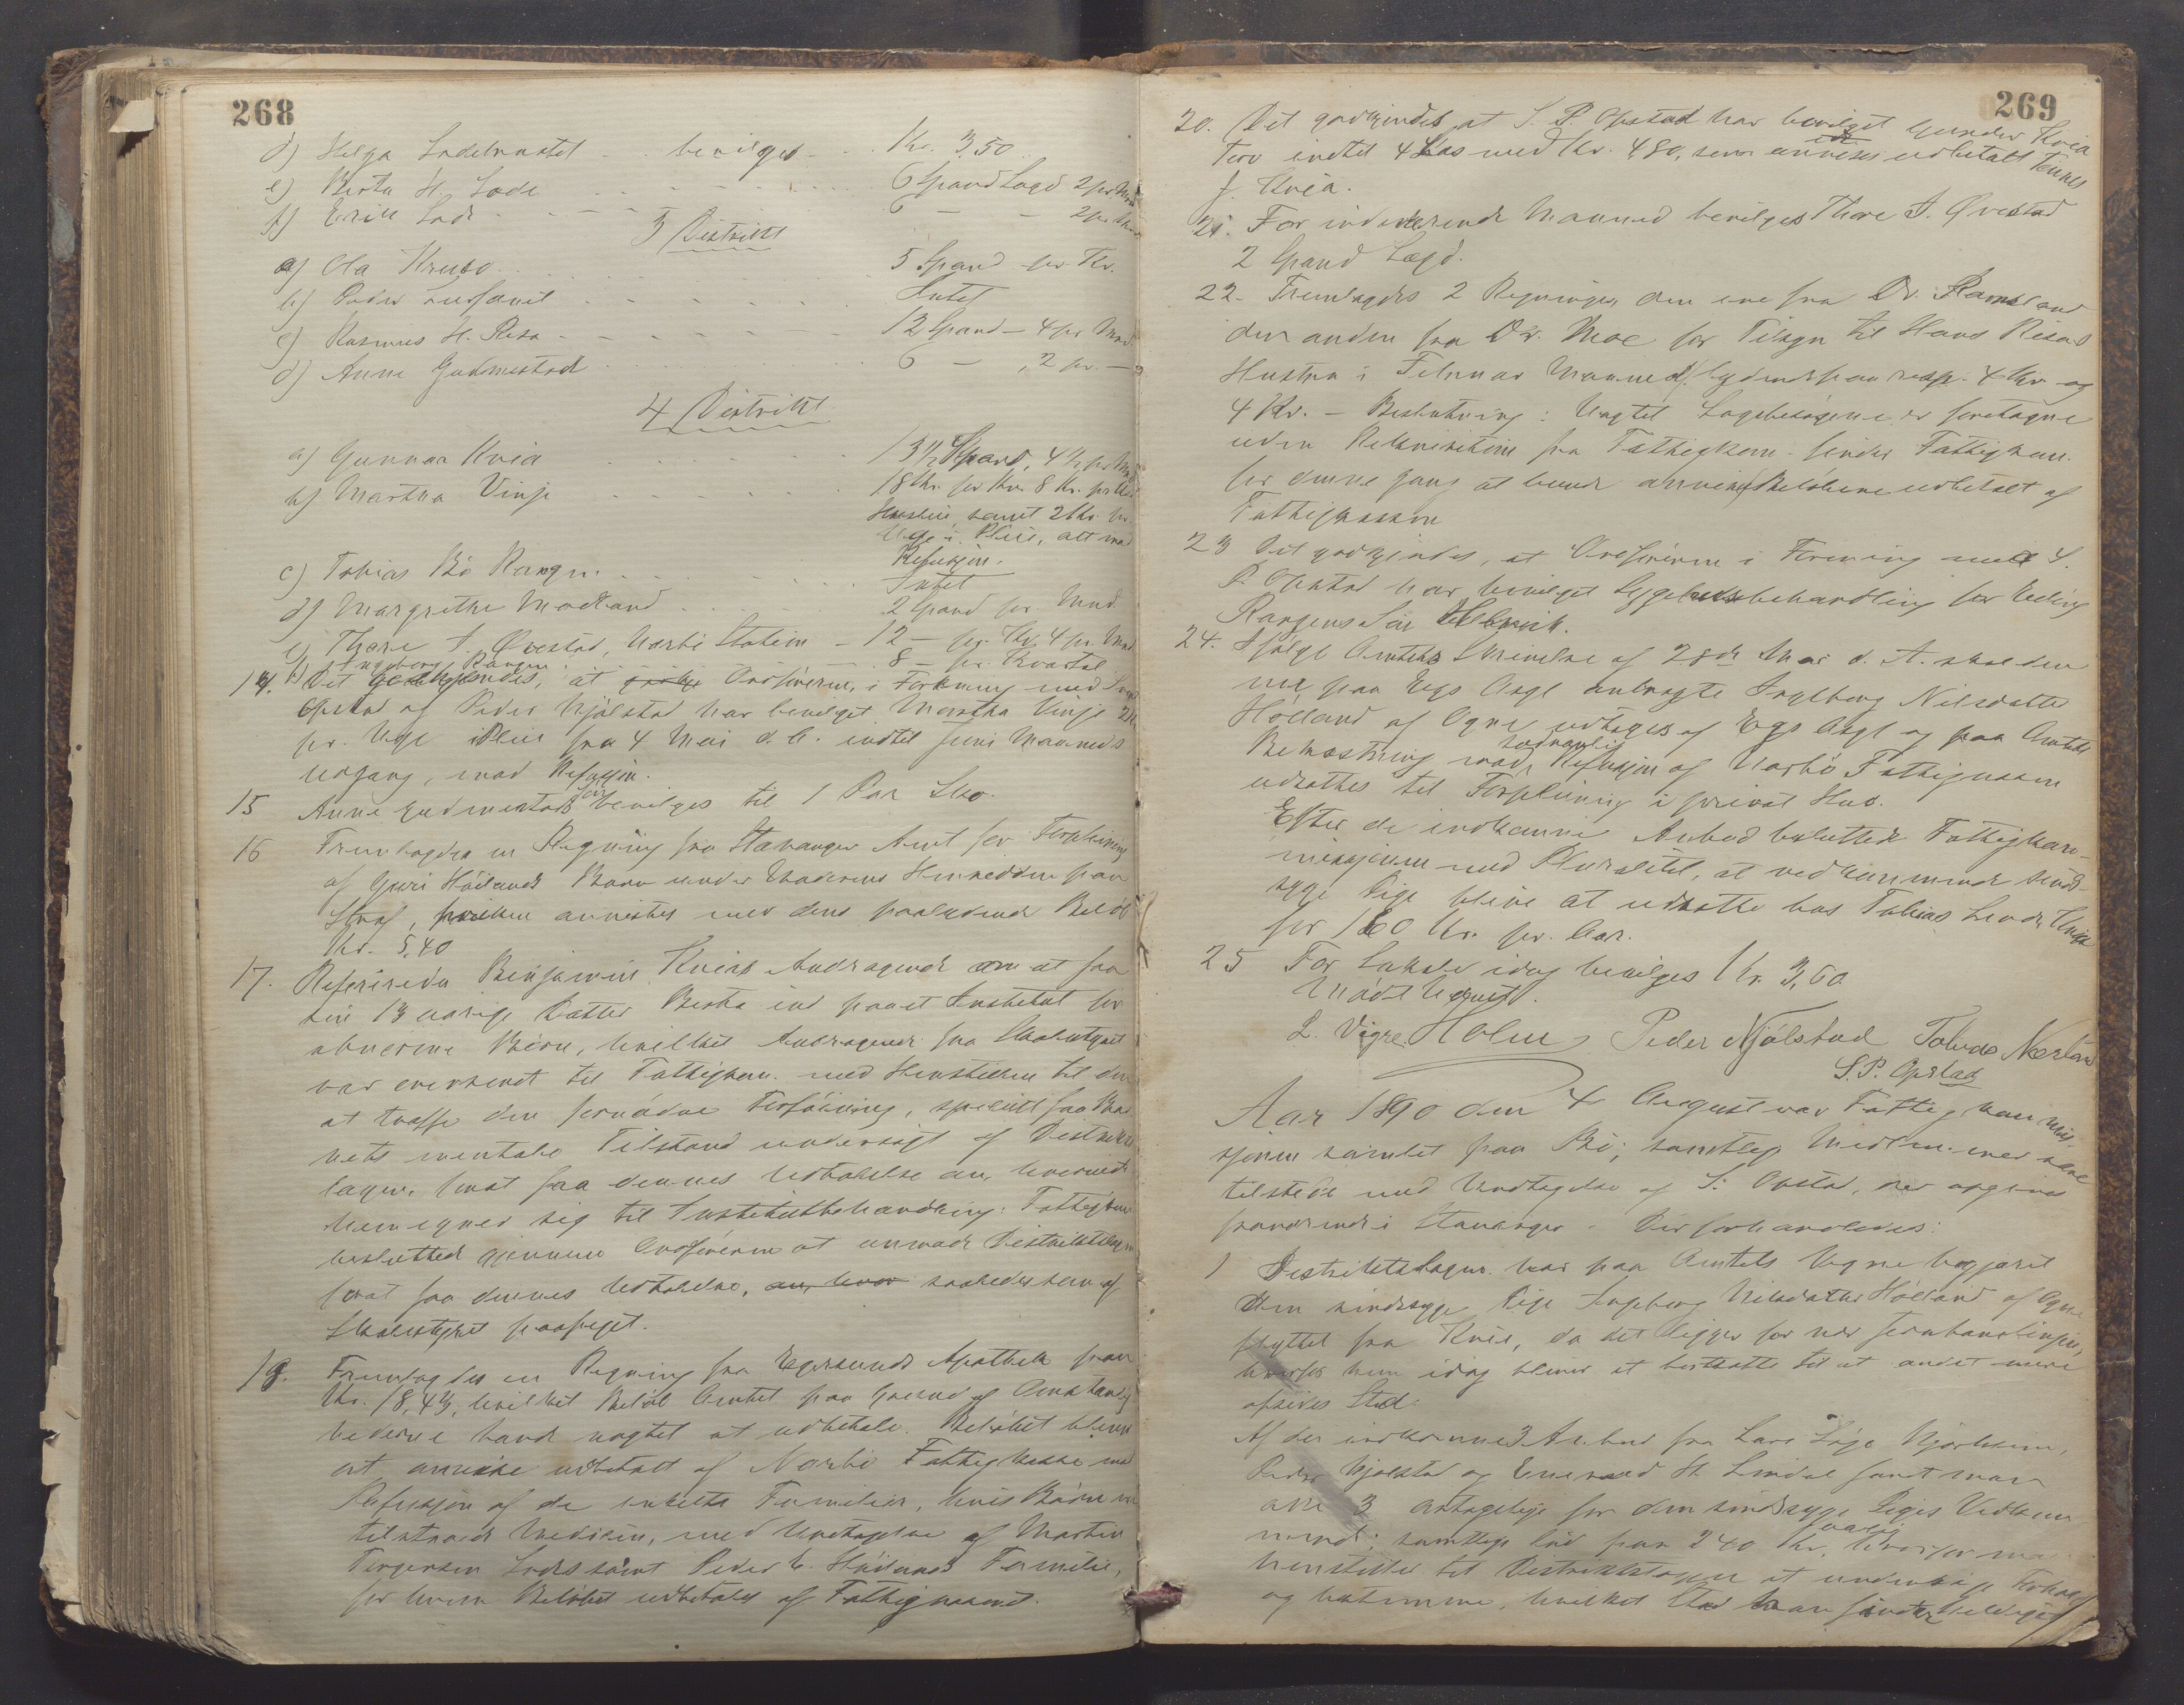 268
d) Helga Lodetrastet .. bevilges - .. Kr. 3,50
e) Berta H. Lode . . . . . . 6 Spand Lagd 2 pr. Mnd
f) Erik Lode . . . . . 6 — — 2 pr. Mnd
3 Distrikt
a) Ola Kruse . . . . . . 5 Spand pr Kv.
b) Peder . . . . . . Intet
c) Rasmus H. Risa . . . . . . 12 Spand — 4 pr Mnd.
d) Anne Gudmestad . . . . . . 6 — , 2 pr. —
4 Distrikt
a) Gunnar Kvia . . . . . . 13½ Spand, 4½ pr Mnd
b) Martha Vinje . . . . . . 18 Kr. pr Kv. 8 Kr. pr
Husleie samt 2 Kr. pr.
Uge i Pleie, alt mod
Refusjon.
c) Tobias Bø Kangn. . . . . . . Intet
d) Margrethe Modland . . . . 2 Spand pr. Mnd
e) Thore A. Qvestad, Narbö Station — 12 — pr. Kv. 4 pr. Mnd
f) Ingeborg Rangen . . . . 8 — pr. Kvartal
14. Det godkjendes, at Ordföreren, i Forening med S.
Opstad af Peder Njölstad har bevilget Martha Vinje 2 Kr
pr. Uge i Pleie fra 4 Mai d. A. indtil Juni Maaneds
Udgang, mod Refusjon.
15 Anne Gudmestads bevilges til 1 Par Sko.
16 Fremlagdes en Regning fra Stavanger Amt for Forpleining
af Guri Höilands Barn under Moderens Henseddn paa
Straf, hvilken anvistes med dens paalydende Belöb
Kr. 5,40
17. Refereredes Benjamin Kvias Andragende om at faa
sin 13 aarige Datter Berta ind paa et Institut for
abnorme Börn, hvilket Andragende fra Skolestyret
var oversendt til Fattigkom. med Henstillen til den
at træffe den fornødne Forföining, specielt faa Bar-
nets mentale Tilstand undersögt af Distrikts
lægen, samt faa dennes Udtalelse om, hvorvidt
hun egner sig til Institutbehandling: Fattigkom
besluttede gjennem Ordföreren at anmode Distriktslægen
samt faa dennes Udtalelse, saaledes som af
Skolestyret paapeget.
18. Fremlagdes en Regning fra Egersunds Apothek paa
Kr. 18,43, hvilket Belöb Amtet paa Grund af Omstændig
hederne havde nægtet at udbetale. Belöbet blev
at anvise udbetalt af Narbö Fattigkasse mod
Refusjon af de enkelte Familier, hvis Börn var
tilstaaet Medicin, med Undtagelse af Martin
Torgersen Lodes samt Peder E. Höilands Familie,
for hvem Belöbet udbetales af Fattigvæsenet.
269
20. Det godkjendes at S. P. Opstad har bevilget Gunder Kvia
Torv indtil 4 Læs med Kr. 4,80, som anvises udbetalt Tønnes
J. Kvia.
21. For indeværende Maaned bevilges Thore A. Qvestad
2 Spand Lagd.
22. Fremlagdes 2 Regninger, den ene fra Dr. Ramsland
den anden fra Dr. Moe for Tilsyn til Hans Risas
Hustru i Februar Maaned, lydende paa resp. 4 Kr. og
4 Kr. — Beslutning: Uagtet Lægebesögene er foretagne
uden Rekvisition fra Fattigkom. finder Fattigkom.
for denne Gang at burde anvise Belöbene udbetalt af
Fattigkassen
23 Det godkjendes, at Ordföreren i Forening med S.
P. Opstad har bevilget Sygehusbehandling for Elling
Rangens Sön Henrik.
24. Ifölge Amtets Skrivelse af 28de Mai d. A. skal den
nu paa Egs Asyl anbragte Ingeborg Nilsdatter
Hölland af Ogne udtages af Egs Asyl og paa Amtets
Bekostning mod sædvanlig Refusjon af Narbö Fattigkasse
udsættes til Forpleining i privat Hus.
Efter de indkomne Anbud besluttede Fattigkom-
missjonen med Pluralitet, at vedkommende sinds-
syge Pige bliver at udsætte hos Tobias Leodr. Kvia
for 160 Kr. pr. Aar.
25 For Lokale idag bevilges Kr. 3,60
Mödet hævet.
L. Vigre Holm Peder Njölstad Tobias Nærland
S. P. Opstad
Aar 1890 den 4 August var Fattigkommis-
sjonen samlet paa Bö; samtlige Medlemmer var
tilstede med Undtagelse af S. Opstad, der opgives
fraværende i Stavanger. Der forhandledes:
1 Distriktslægen har paa Amtets Vegne begjæret
den sindssyge Pige Ingeborg Nilsdatter Hölland af Ogne
flyttet fra Kvia, da det ligger for nær Jernbanelinjen,
hvorfor hun idag bliver at bortsætte til et andet mere
afsides Sted.
Af de indkomne 3 Anbud fra Lars Löge Njærheim,
Peder Njölstad og Enevald H. Lindal fandt man
alle 3 antagelige for den sindssyge Piges Vedkom
mende; samtlige löd paa 240 Kr. aarlig, hvorfor man
henstiller til Distriktslægen at undersöge Forholdene
og bestemme, hvilket Sted man finder heldigst